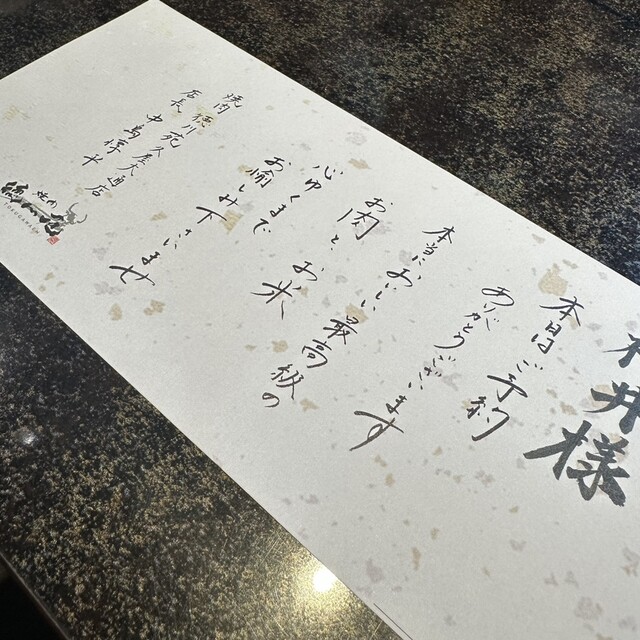 井様
本日はご予約
ありがとうございます
本当においしい最高級の
お肉とお米
心ゆくまで
お愉しみ下さいませ
焼肉 徳川苑久屋大通店
店長 中島
焼肉